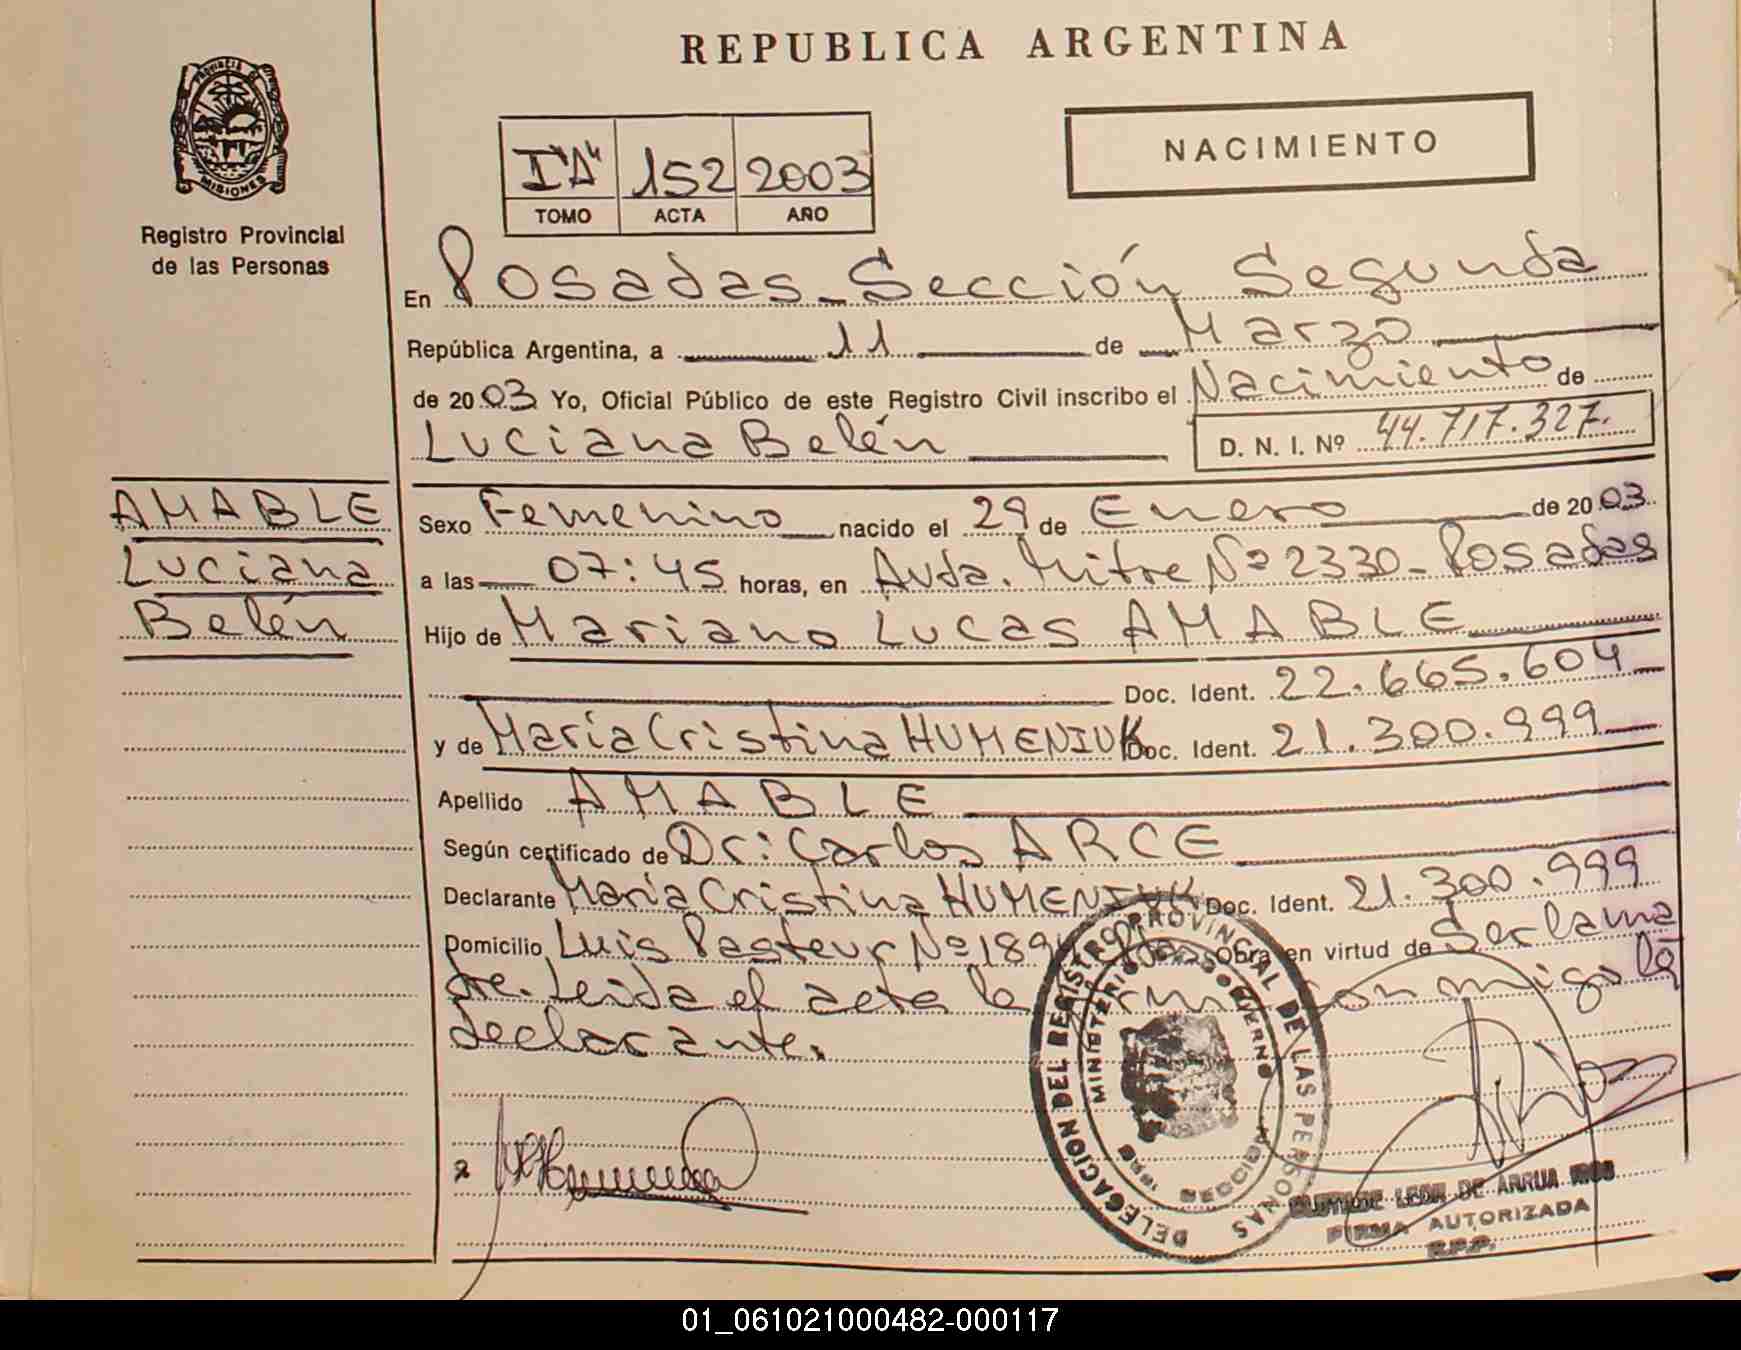 REPUBLICA ARGENTINA
PROVINCIA DE
MISIONES
Registro Provincial
de las Personas
I "A" 152 2003
TOMO ACTA AÑO
NACIMIENTO
En Posadas - Sección Segunda
República Argentina, a 11 de Marzo
de 2003 Yo, Oficial Público de este Registro Civil inscribo el Nacimiento de
Luciana Belén D. N. I. Nº 44.717.327.
AMABLE
Luciana
Belén
Sexo Femenino nacido el 29 de Enero de 2003
a las 07:45 horas, en Avda. Mitre Nº 2330 - Posadas
Hijo de Mariano Lucas AMABLE
Doc. Ident. 22.665.604
y de María Cristina HUMENIUK Doc. Ident. 21.300.999
Apellido AMABLE
Según certificado de Dr: Carlos ARCE
Declarante María Cristina HUMENIUK Doc. Ident. 21.300.999
Domicilio Luis Pasteur Nº 189 Obra en virtud de Ser la ma
dre. Leida el acta la conmigo la
declarante.
DELEGACION DEL REGISTRO PROVINCIAL DE LAS PERSONAS
MINISTERIO DE GOBIERNO
SECCION
LEOR DE ARRUA
FIRMA AUTORIZADA
R.P.P.
01_061021000482-000117